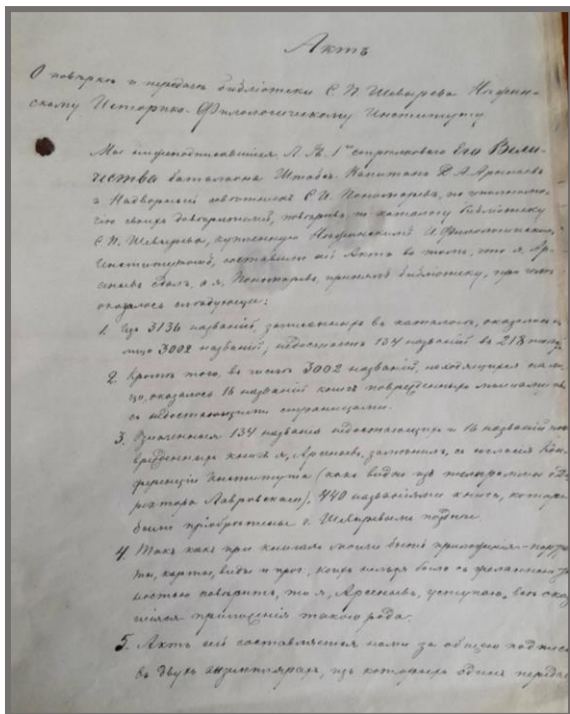 Актъ
О повѣркѣ и передачѣ библіотеки С. П. Шевырева Нѣжин-
скому Историко-Филологическому Институту
Мы нижеподписавшіеся Л. Гв. 1го стрѣлковаго Его Вели-
чества баталіона Штабсъ-Капитанъ Арсеньевъ
и Надворный совѣтникъ С. И. Пономаревъ, по уполномо-
чію своихъ довѣрителей, повѣривъ по каталогу библіотеку
С. П. Шевырева, купленную Нѣжинскимъ И. Филологическимъ
Институтомъ, составили сей Актъ въ томъ, что я, Ар-
сеньевъ сдалъ, а я, Пономаревъ, принялъ библіотеку, при чемъ
оказалось слѣдующее:
1. Изъ 3136 названій, записанныхъ въ каталогъ, оказалось на
лицо 3002 названій, недостаетъ 134 названій въ 218
2. Кромѣ того, въ числѣ 3002 названій, находящихся на ли-
цо, оказалось 16 названій книгъ поврежденныхъ
съ недостающими страницами.
3. Означенныя 134 названія недостающихъ и 16 названій по-
врежденныхъ книгъ я, Арсеньевъ, замѣнилъ, съ согласія Кон-
ференціи Института (какъ видно изъ телеграммы Ди-
ректора Лавровскаго), 440 названіями книгъ, которыя
были пріобрѣтены г. Шевыревымъ позднѣе.
4. Такъ какъ при книгахъ могли быть приложенія - портре-
ты, карты, виды и проч., коихъ нельзя было съ
ностью повѣрить, то я, Арсеньевъ, уступаю всѣ
приложенія такого рода.
5. Актъ сей составляется нами за общею подписью
въ двухъ экземплярахъ, изъ которыхъ одинъ